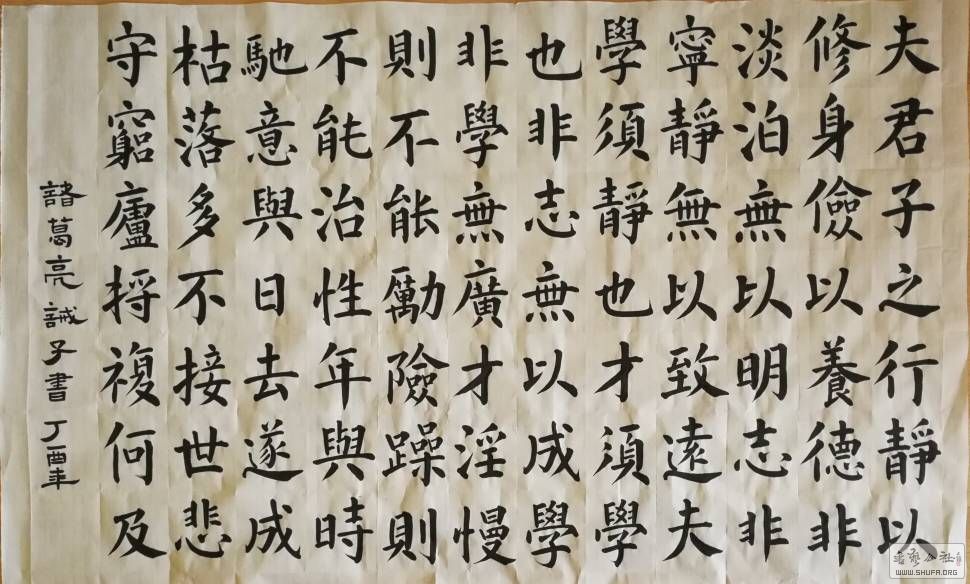 夫君子之行靜以
修身儉以養德非
淡泊無以明志非
寧靜無以致遠夫
學須靜也才須學
也非志無以成學
非學無廣才淫慢
則不能勵險躁則
不能治性年與時
馳意與日去遂成
枯落多不接世悲
守窮廬捋複何及
諸葛亮誡子書 丁酉年
WWW.SHUFA.ORG